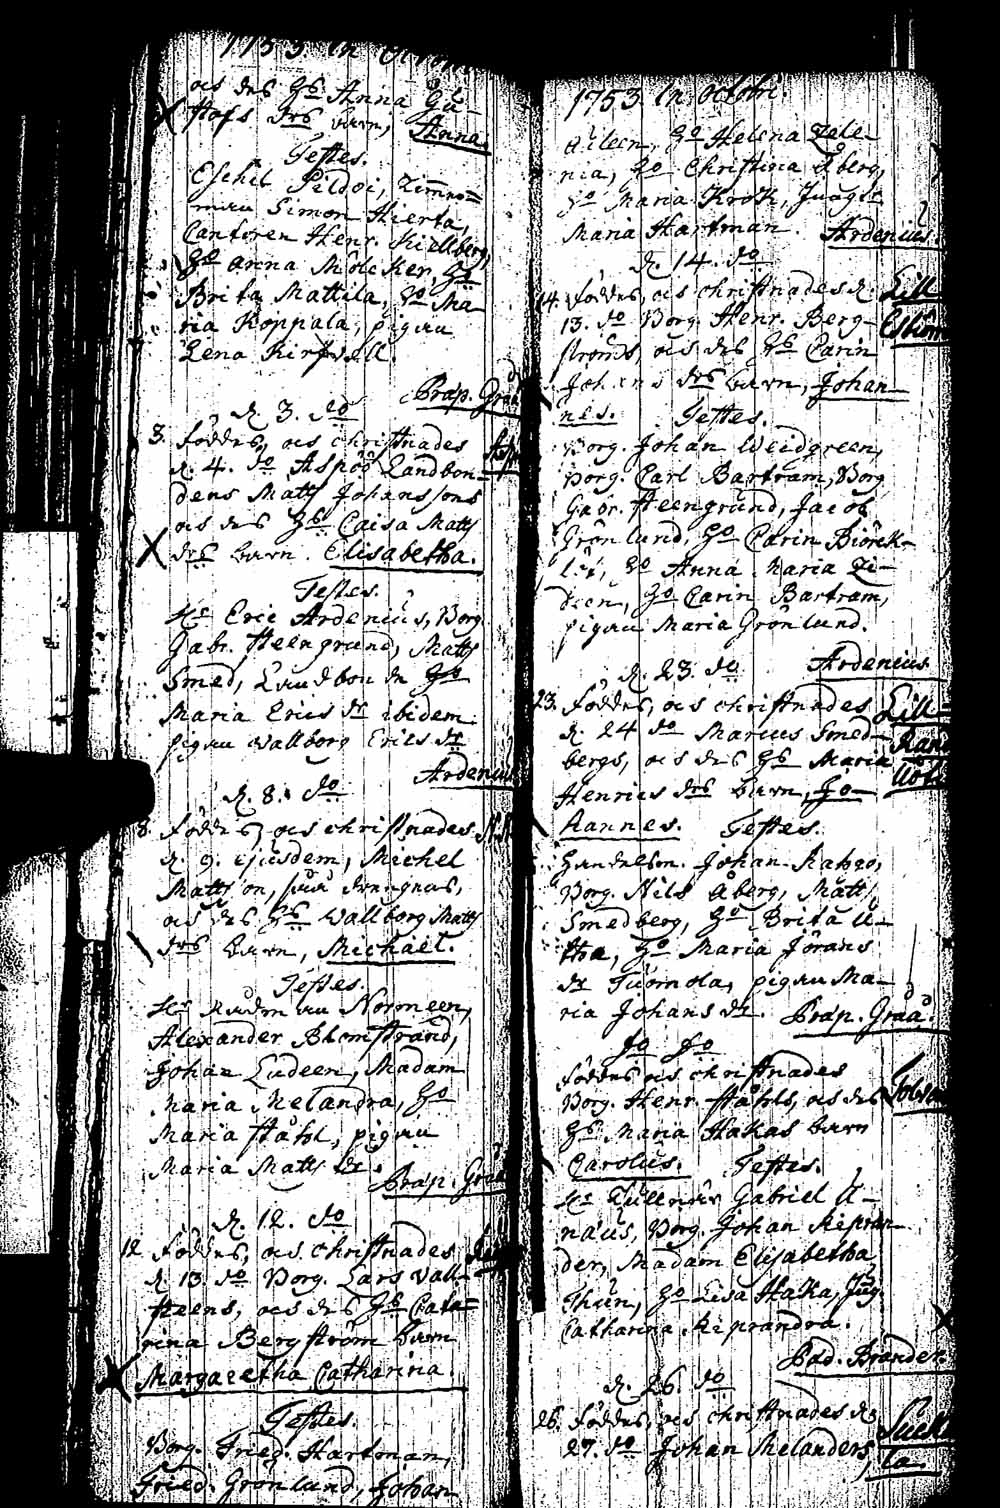 1753 In Octobri
och des H: Anna
Hofs drs barn, Anna.
Testes.
Eschil Pildoi, Timmer=
man Simon Hierta,
Cantoren Henr. Kiellberg,
Ho Anna Molcker, Ho
Brita Mattila, Ho Ma-
ria Koppala, pigan
Lena
Præp. Gråå
D. 3. do
3. föddes, och christnades
d. 4. do Aspöö Landbon-
dens Matts Johanssons
och des H: Caisa Matts
drs barn. Elisabetha.
Testes.
Hr Eric Ardenius, Borg.
Gabr. Heengrund, Matts
Smed, Landbonde Ho
Maria Erics dr ibidem
pigan Wallborg Erics dr
Ardenius
D. 8. do
8. föddes, och christnades
d. 9. ejusdem, Michel
Mattsson,
och des H: Wallborg Matts
drs barn, Michael.
Testes.
Hr Rådman Normeen,
Alexander Blomstrand,
Johan Ludeen, Madam
Maria Melandra, Ho
Maria Ståhl, pigan
Maria Matts dr.
Præp. Gråå
D. 12. do
12. föddes, och christnades
d. 13. do Borg. Lars Wall-
steens, och des H: Cata=
rina Bergström barn
Margaretha Catharina.
Testes.
Borg. Fried. Hartman,
Fried. Grönlund, Johan
1753 In Octobri.
Ho Helena
nia, Ho Christina Åberg,
Ho Maria Krook, Jungfr
Maria Hartman. Ardenius.
D. 14. do
14. föddes, och christnades d. Lill
13. do Borg. Henr. Berg-
ströms, och des H: Carin
Johans drs barn, Johan-
nes. Testes.
Borg. Johan Weidgreen,
Borg. Carl Bartram, Borg
Gabr. Heengrund, Jacob
Grönlund, Ho Carin Biörck-
Ho Anna Maria Li-
deen, Ho Carin Bartram,
pigan Maria Grönlund.
Ardenius
D. 23. do
23. föddes, och christnades Lill-
d. 24 do Marcus Smed-
bergs, och des H: Maria
Henrics drs barn, Jo-
hannes. Testes.
Handelsm. Johan
Borg. Nils Åberg, Matts
Smedberg, Ho Brita U-
tha, Ho Maria Jörans
dr Tuomola, pigan Ma-
ria Johans dr. Præp. Gråå.
do do
föddes och christnades
Borg. Henr. Ståhls, och des
H: Maria Hakas barn
Carolus. Testes.
Hr Tullnär Gabriel U-
næus, Borg. Johan Kepran-
der, Madam Elisabetha
Thun, Ho Lisa Haka, Jug.
Catharina Keprandra.
Pæd. Brander.
D. 26. do
26. föddes, och christnades d.
27. do Johan Melanders,